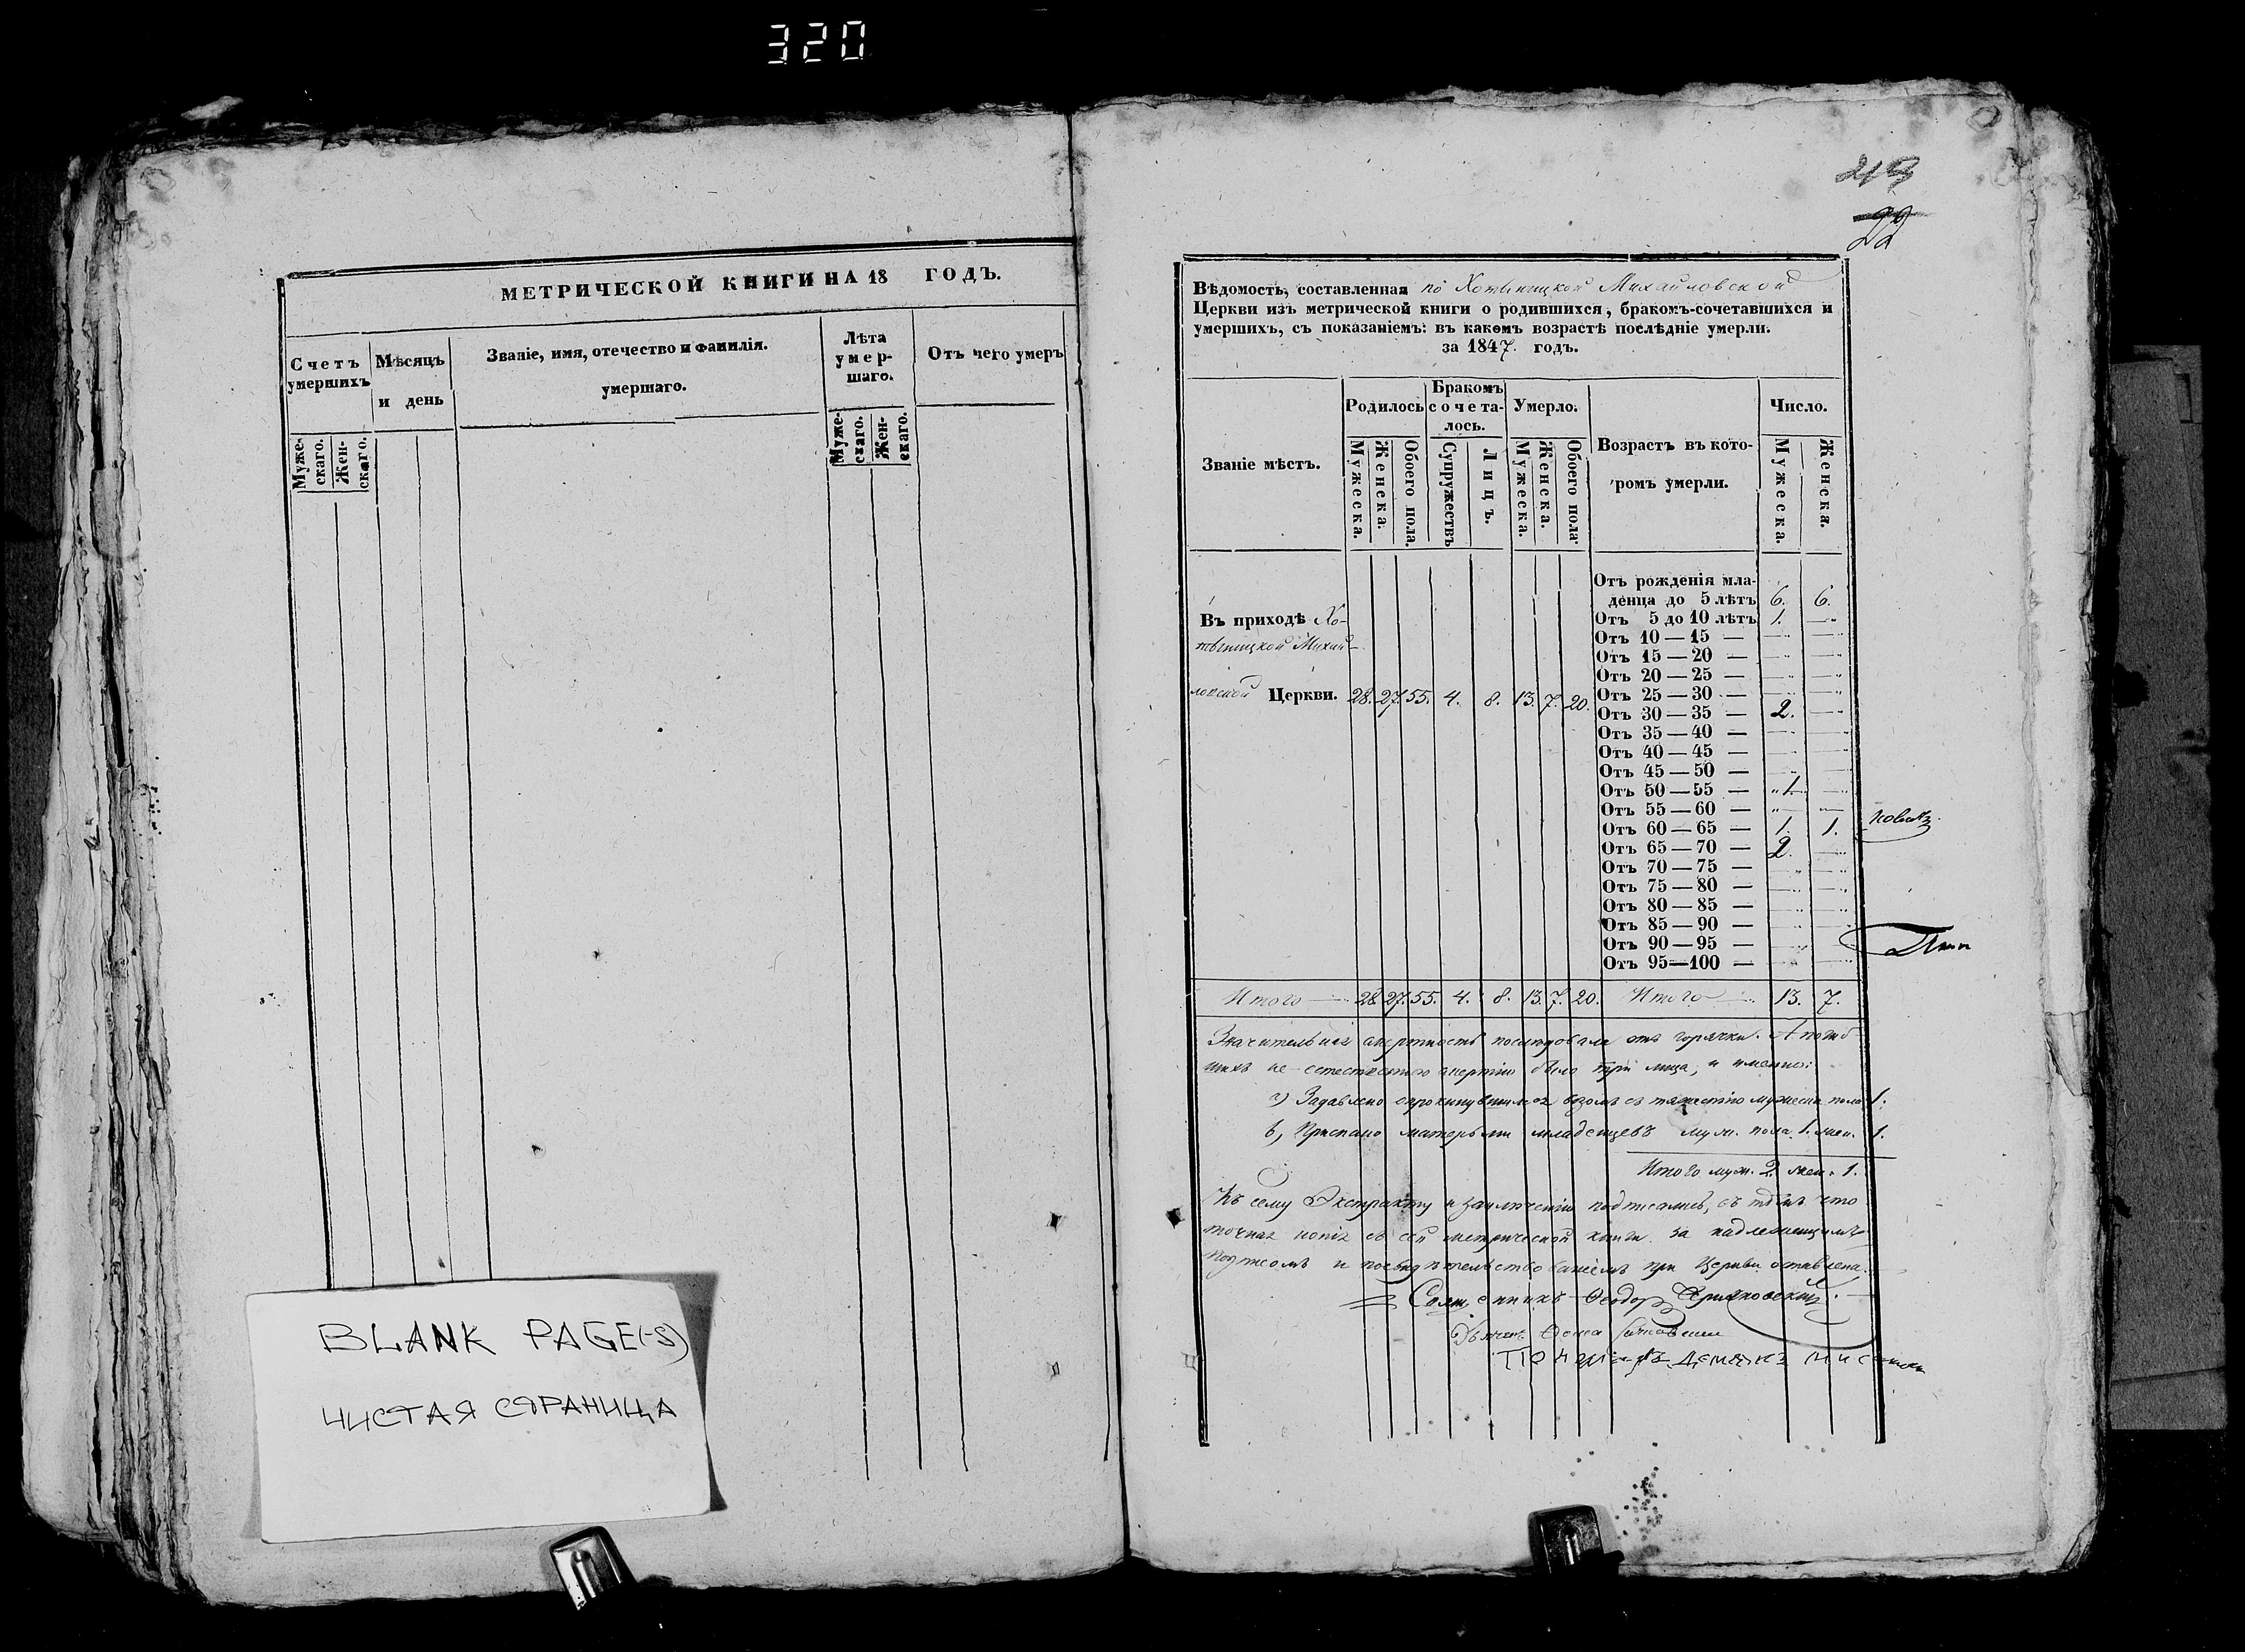 320
МЕТРИЧЕСКОЙ КНИГИ НА 18 ГОДЪ.
Счетъ умершихъ
Муже-скаго.
Жен-скаго.
Мѣсяцъ и день
Званіе, имя, отечество и фамилія.
умершаго.
Лѣта умер-шаго.
Муже-скаго.
Жен-скаго.
Отъ чего умеръ
BLANK PAGE(-S)
ЧИСТАЯ СТРАНИЦА
Вѣдомость, составленная по Хотыницкой Михайловской
Церкви изъ метрической книги о родившихся, бракомъ-сочетавшихся и
умершихъ, съ показаніемъ: въ какомъ возрастѣ послѣдніе умерли.
за 1847. годъ.
Званіе мѣстъ.
Родилось
Мужеска. Женска. Обоего пола.
Бракомъ сочета-лось.
Супружествъ Лицъ.
Умерло.
Мужеска. Женска. Обоего пола.
Возрастъ въ кото-
ромъ умерли.
Число.
Мужеска. Женска.
Въ приходѣ Хо-
тыницкой Михай-
ловской Церкви. 28. 27. 55. 4. 8. 13. 7. 20.
Отъ рожденія мла-
денца до 5 лѣтъ 6. 6.
Отъ 5 до 10 лѣтъ 1. —
Отъ 10 — 15 — — —
Отъ 15 — 20 — — —
Отъ 20 — 25 — — —
Отъ 25 — 30 — — —
Отъ 30 — 35 — 2. —
Отъ 35 — 40 — — —
Отъ 40 — 45 — — —
Отъ 45 — 50 — — —
Отъ 50 — 55 — 1. —
Отъ 55 — 60 — — —
Отъ 60 — 65 — 1. 1.
Отъ 65 — 70 — 2. —
Отъ 70 — 75 — — —
Отъ 75 — 80 — — —
Отъ 80 — 85 — — —
Отъ 85 — 90 — — —
Отъ 90 — 95 — — —
Отъ 95—100 — — —
Итого — 28. 27. 55. 4. 8. 13. 7. 20. Итого — 13. 7.
Значительная смертность послѣдовала отъ горячки. А погиб
шихъ не-естественною смертію было три лица, а именно:
а) Задавлено опрокинувшимся возомъ съ тяжестію мужеска пола 1.
в) Приспано матерьми младенцевъ муж. пола 1. жен. 1.
Итого муж. 2 жен. 1.
Къ сему Экстракту и заключенію подписались, съ тѣмъ что
точная копія съ сей метрической книги за надлежащимъ
подписомъ и посвидѣтельствованіемъ при Церкви оставлена.
Священникъ Ѳеодоръ
Дьячекъ Ѳома